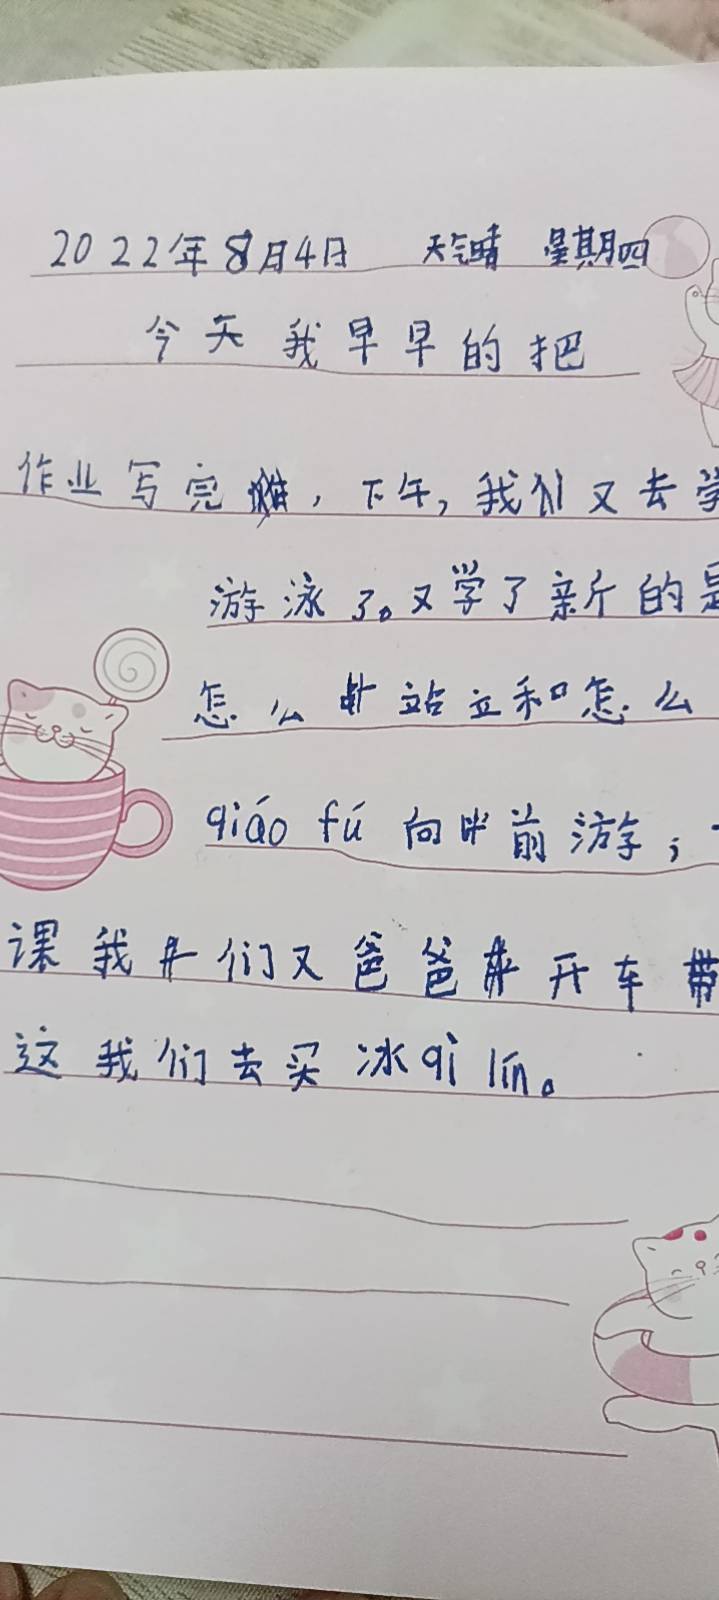 2022年8月4日 天气晴 星期四
今天我早早的把
作业写完,下午,我们又去学
游泳了。又学了新的是
怎么站立和怎么
qiáo fú 向前游;
课我们又爸爸开车带
这我们去买冰qì lín。